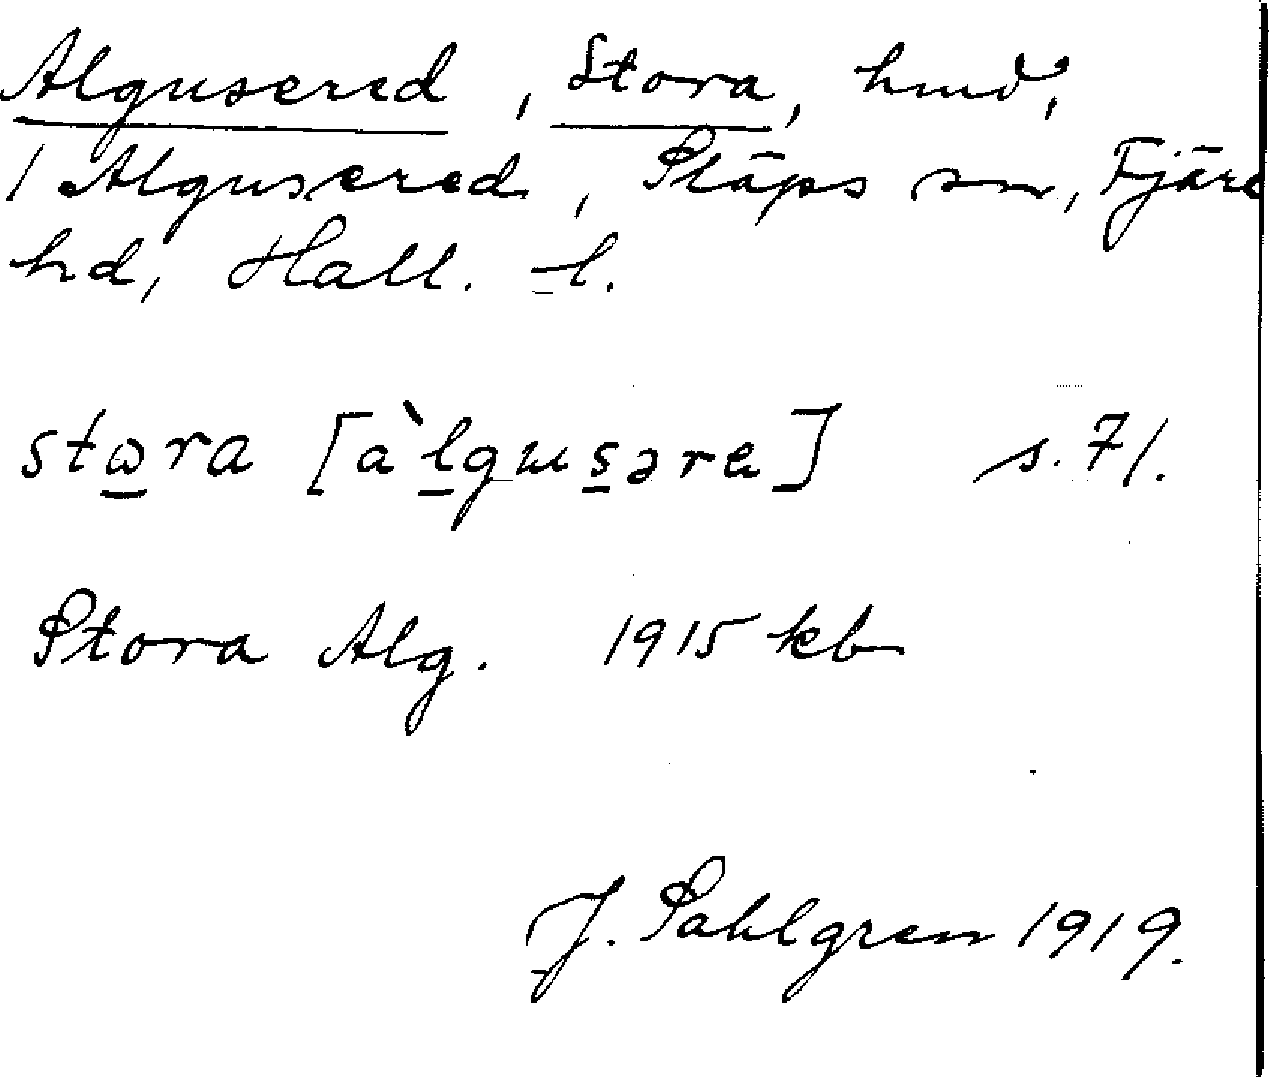 Algusered, Stora, hmd,
1 Algusered, Släps sn, Fjäre
hd, Hall. l.
stɷra [a`lgusəra] s. 71.
Stora Alg. 1915 kb
J. Sahlgren 1919.